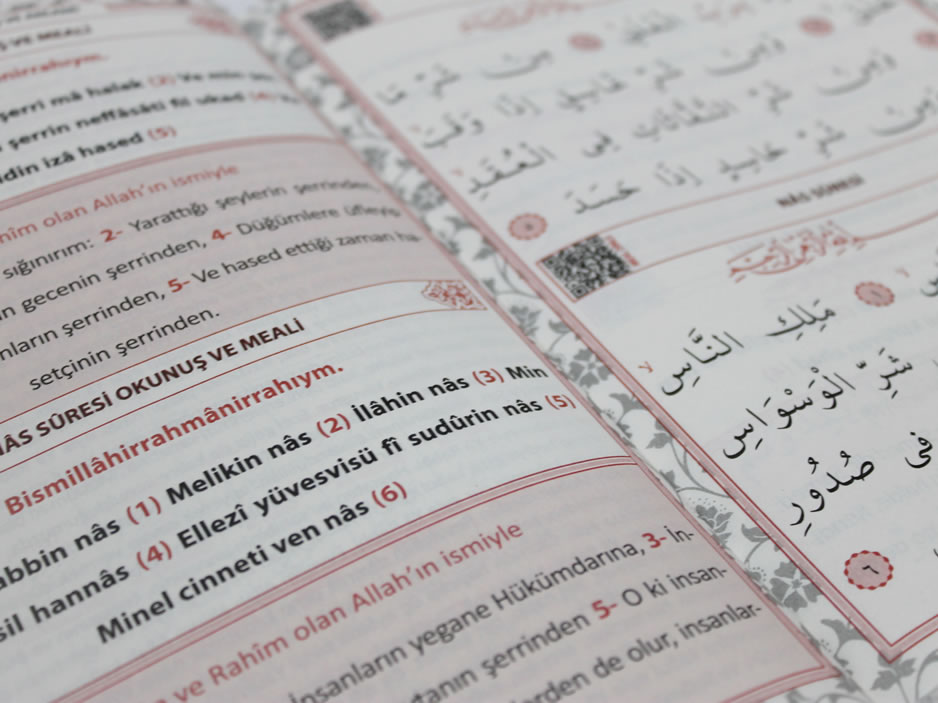 Ş VE MEALİ
şerri mâ halak (2) Ve min
şerrin neffâsâti fil ukad (4)
izâ hased (5)
olan Allah'ın ismiyle
sığınırım: 2- Yarattığı şeylerin şerrinden,
gecenin şerrinden, 4- Düğümlere üfleyip
şerrinden, 5- Ve hased ettiği zaman ha-
setçinin şerrinden.
NÂS SÛRESİ OKUNUŞ VE MEALİ
Bismillâhirrahmânirrahıym.
nâs (1) Melikin nâs (2) İlâhin nâs (3) Min
hannâs (4) Ellezî yüvesvisü fî sudûrin nâs (5)
Minel cinneti ven nâs (6)
ve Rahîm olan Allah'ın ismiyle
İnsanların yegane Hükümdarına, 3- İn-
şerrinden 5- O ki insan-
de olur, insanlar-
مِنْ شَرِّ مَا
وَمِنْ شَرِّ غَاسِقٍ إِذَا وَقَبَ
وَمِنْ شَرِّ النَّفَّاثَاتِ فِي الْعُقَدِ
وَمِنْ شَرِّ حَاسِدٍ إِذَا حَسَدَ
٥
NÂS SÛRESİ
١ مَلِكِ النَّاسِ
شَرِّ الْوَسْوَاسِ
فِى صُدُورِ
٦